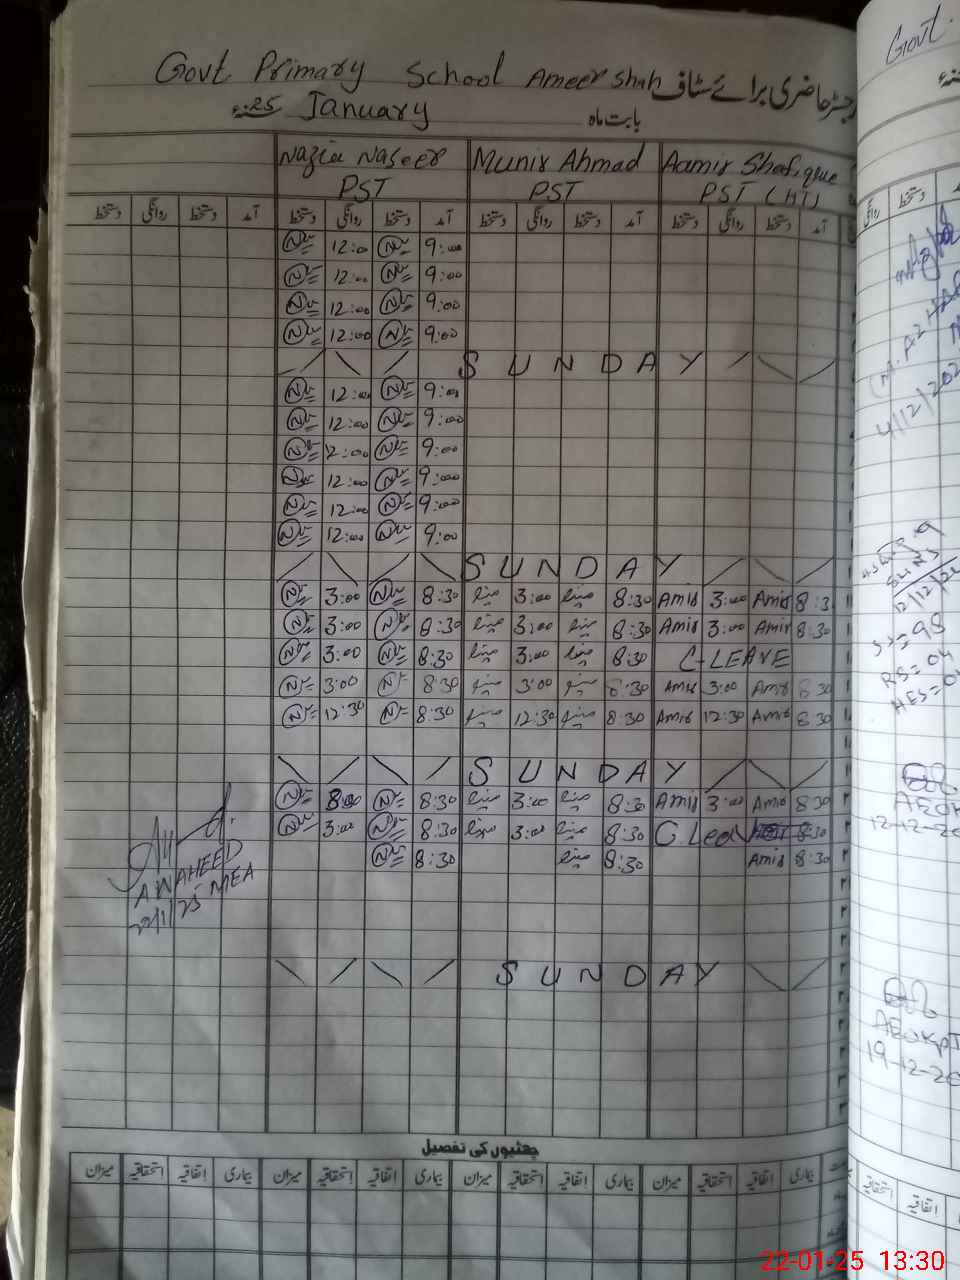 Govt Primary School Ameer Shah رجسٹر حاضری برائے سٹاف
بابت ماہ January 25ء
Nazia Naseer Munir Ahmad Aamir Shafique
PST PST PST (HT)
آمد دستخط روانگی دستخط آمد دستخط روانگی دستخط آمد دستخط روانگی دستخط آمد دستخط روانگی دستخط
12:00 9:00
12:00 9:00
12:00 9:00
12:00 9:00
SUNDAY
12:00 9:00
12:00 9:00
12:00 9:00
12:00 9:00
12:00 9:00
12:00 9:00
SUNDAY
3:00 8:30 منیر 3:00 منیر 8:30 Amir 3:00 Amir 8:3
3:00 8:30 منیر 3:00 منیر 8:30 Amir 3:00 Amir 8:30
3:00 8:30 منیر 3:00 منیر 8:30 C-LEAVE
3:00 8:30 منیر 3:00 منیر 8:30 Amir 3:00 Amir 8:30
12:30 8:30 منیر 12:30 منیر 8:30 Amir 12:30 Amir 8:30
SUNDAY
3:00 8:30 منیر 3:00 منیر 8:30 Amir 3:00 Amir 8:30
3:00 8:30 منیر 3:00 منیر 8:30 C Leav 8:30
8:30 منیر 8:30 Amir 8:30
A WAHEED
MEA
SUNDAY
چھٹیوں کی تفصیل
بیماری اتفاقیہ استحقاقیہ میزان بیماری اتفاقیہ استحقاقیہ میزان بیماری اتفاقیہ استحقاقیہ میزان بیماری اتفاقیہ استحقاقیہ میزان
Govt.
دستخط روانگی
4/12/202
12/12/20
=98
RS=04
12-12-20
19-12-20
اتفاقیہ استحقاقیہ
22-01-25 13:30